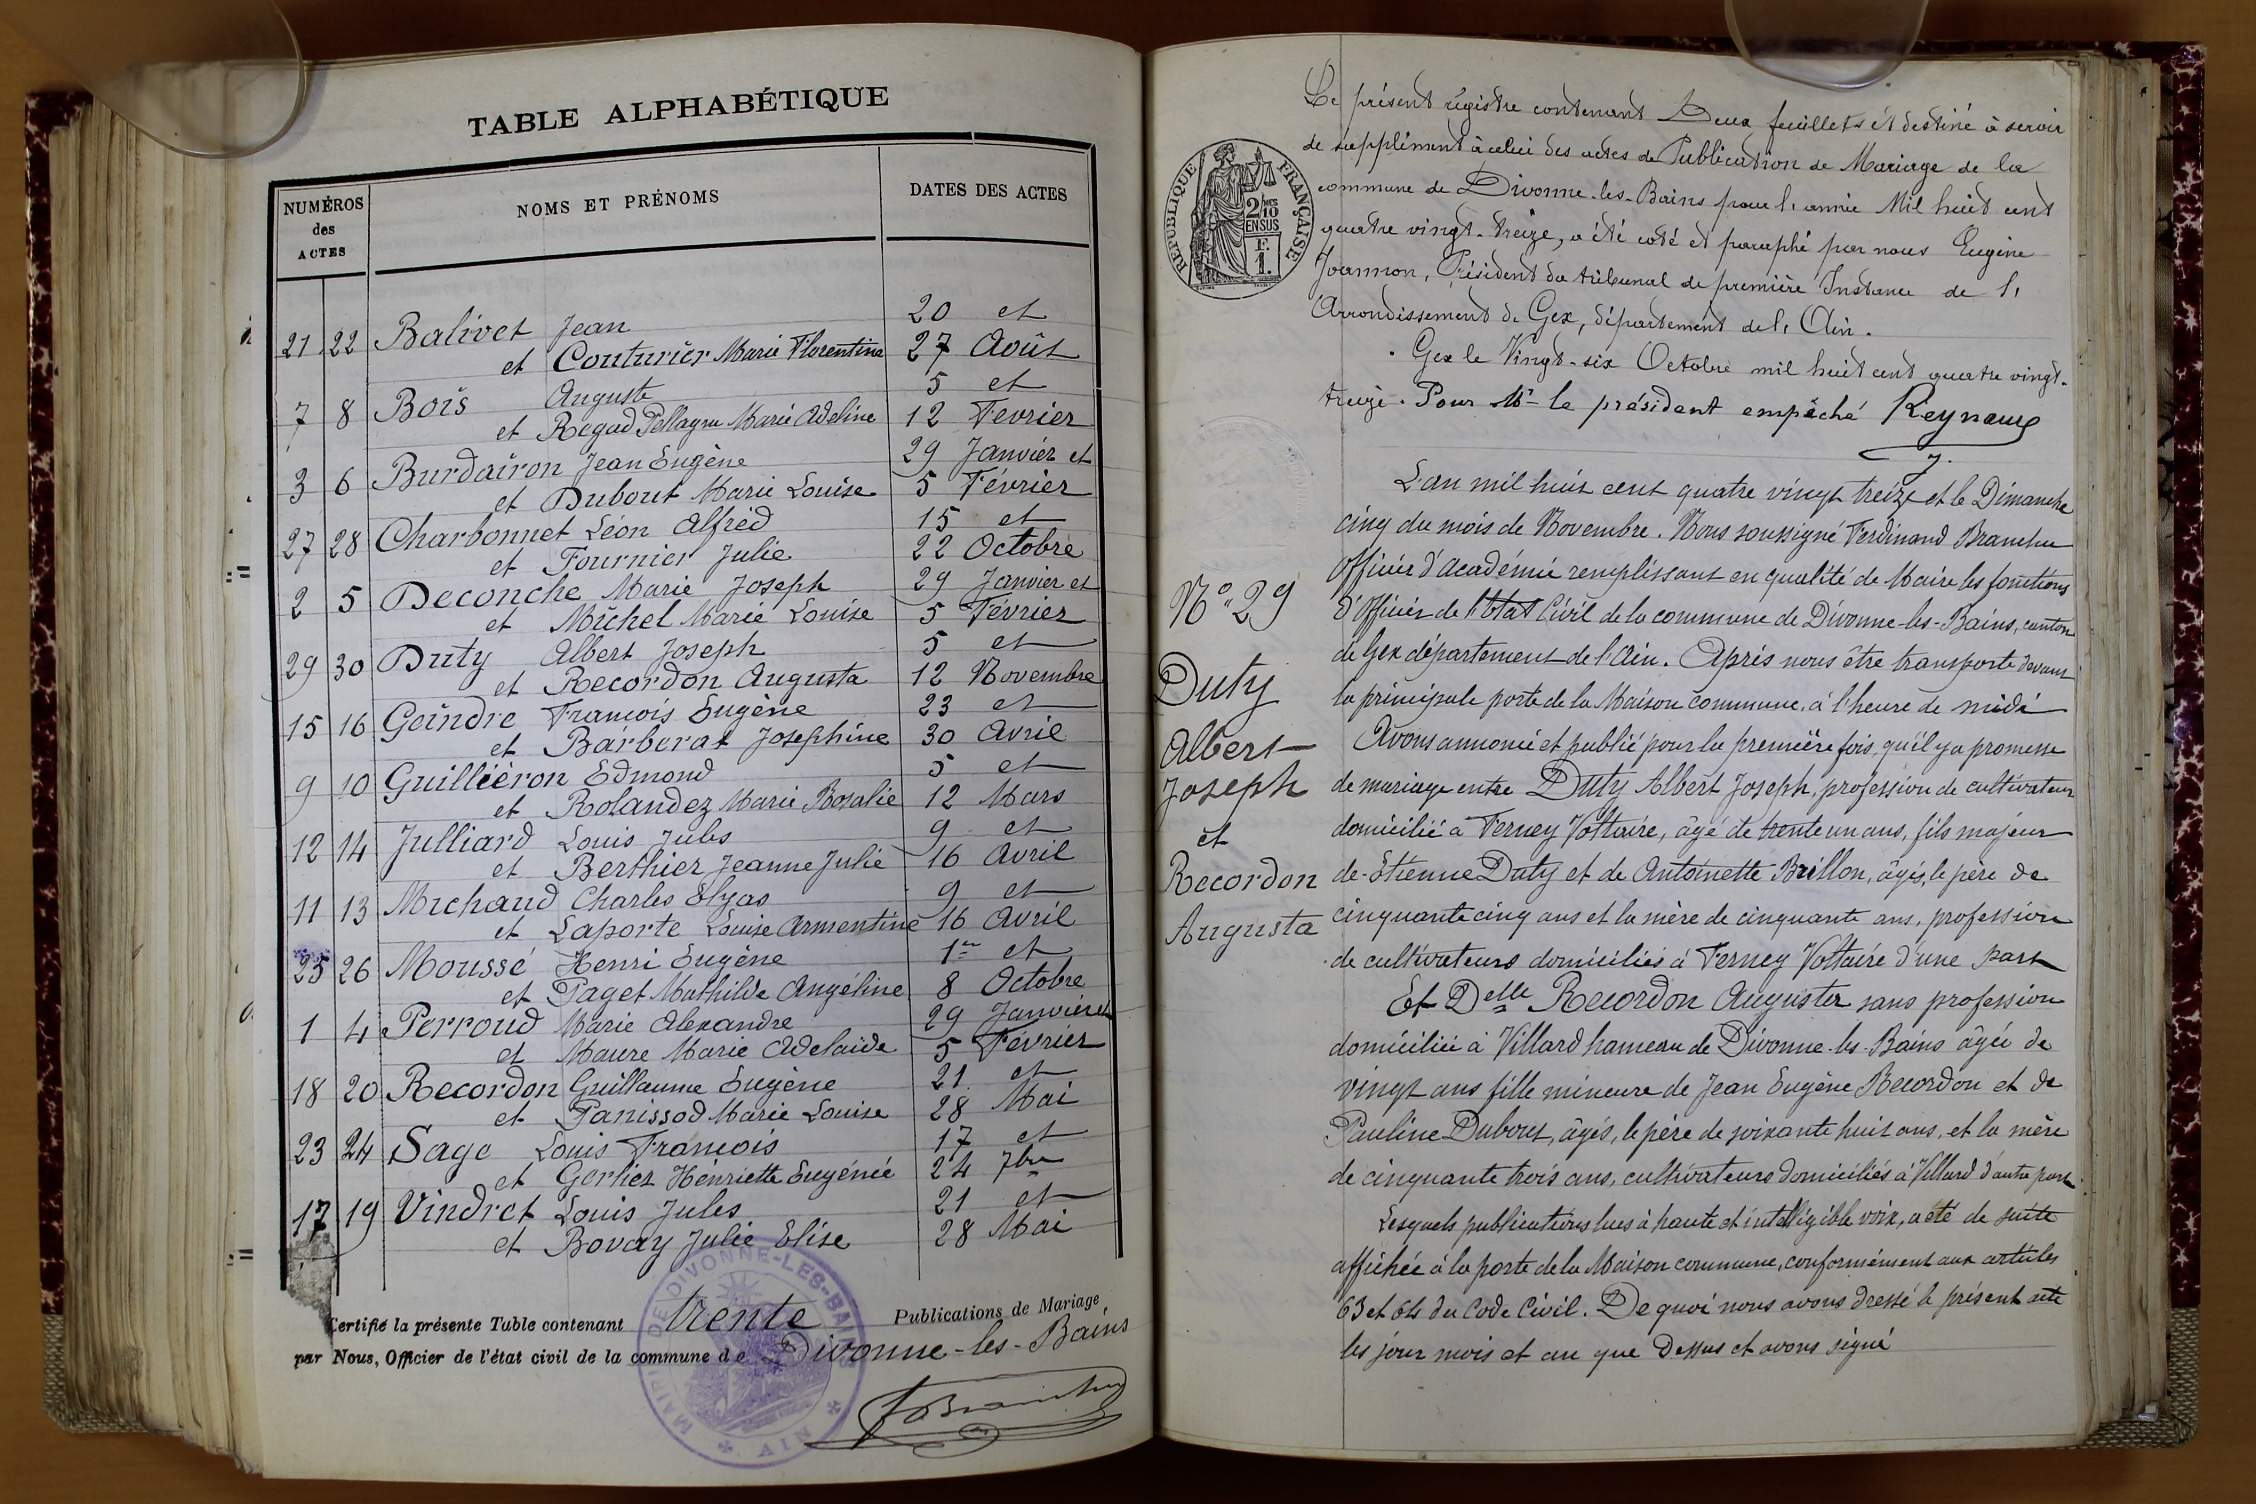 TABLE ALPHABÉTIQUE
NUMÉROS
des
ACTES
NOMS ET PRÉNOMS
DATES DES ACTES
21 22 Balivet Jean 20 et
et Couturier Marie Florentine 27 Août
7 8 Bois Auguste 5 et
et Regad Pellagru Marie Adeline 12 Fevrier
3 6 Burdairon Jean Eugène 29 Janvier et
et Dubout Marie Louise 5 Février
27 28 Charbonnet Léon Alfred 15 et
et Fournier Julie 22 Octobre
2 5 Deconche Marie Joseph 29 Janvier et
et Michel Marie Louise 5 Février
29 30 Duty Albert Joseph 5 et
et Recordon Augusta 12 Novembre
15 16 Goindre François Eugène 23 et
et Barberat Josephine 30 Avril
9 10 Guilliéron Edmond 5 et
et Rolandez Marie Rosalie 12 Mars
12 14 Julliard Louis Jules 9 et
et Berthier Jeanne Julie 16 Avril
11 13 Michaud Charles Elyas 9 et
et Laporte Louise Armentine 16 Avril
25 26 Moussé Henri Eugène 1er et
et Paget Mathilde Angéline 8 Octobre
1 4 Perroud Marie Alexandre 29 Janvier et
et Maure Marie Adelaïde 5 Fevrier
18 20 Recordon Guillaume Eugène 21 et
et Panissod Marie Louise 28 Mai
23 24 Sage Louis François 17 et
et Gerlier Henriette Eugénie 24 7bre
17 19 Vindret Louis Jules 21 et
et Bovay Julie Elise 28 Mai
Certifié la présente Table contenant trente Publications de Mariage,
par Nous, Officier de l'état civil de la commune de Divonne-les-Bains
MAIRIE DE DIVONNE-LES-BAINS
AIN
RÉPUBLIQUE FRANÇAISE
2/10 EN SUS
F.
1.
Le présent régistre contenant Deux feuillets et destiné à servir
de supplément à celui des actes de Publication de Mariage de la
commune de Divonne-les-Bains pour l'année Mil huit cent
quatre vingt-treize, a été coté et paraphé par nous Eugène
Joannon, Président du tribunal de première Instance de l'
Arrondissement de Gex, département de l'Ain.
Gex le Vingt-six Octobre mil huit cent quatre vingt-
treize. Pour Mr le président empêché Reynaud
L'an mil huit cent quatre vingt treize et le Dimanche
cinq du mois de Novembre. Nous soussigné Ferdinand Branchu
Officier d'académie remplissant en qualité de Maire les fonctions
d'officier de l'état Civil de la commune de Divonne-les-Bains, canton
de Gex département de l'Ain. Après nous être transporté devant
la principale porte de la Maison commune, à l'heure de midi
Avons annoncé et publié pour la première fois, qu'il y a promesse
de mariage entre Duty Albert Joseph, profession de cultivateur
domicilié à Ferney Voltaire, âgé de trente un ans, fils majeur
de Etienne Duty et de Antoinette Brillon, âgés, le père de
cinquante cinq ans et la mère de cinquante ans, profession
de cultivateurs domiciliés à Ferney Voltaire d'une part
Et Delle Recordon Augusta sans profession
domiciliée à Villard hameau de Divonne-les-Bains âgée de
vingt ans fille mineure de Jean Eugène Recordon et de
Pauline Dubout, âgés, le père de soixante huit ans, et la mère
de cinquante trois ans, cultivateurs domiciliés à Villard d'autre part
Lesquels publications lues à haute et intelligible voix, a été de suite
affichée à la porte de la Maison commune, conformément aux articles
63 et 64 du Code Civil. De quoi nous avons dressé le présent acte
les jour mois et an que dessus et avons signé
No 29
Duty
Albert
Joseph
et
Recordon
Augusta